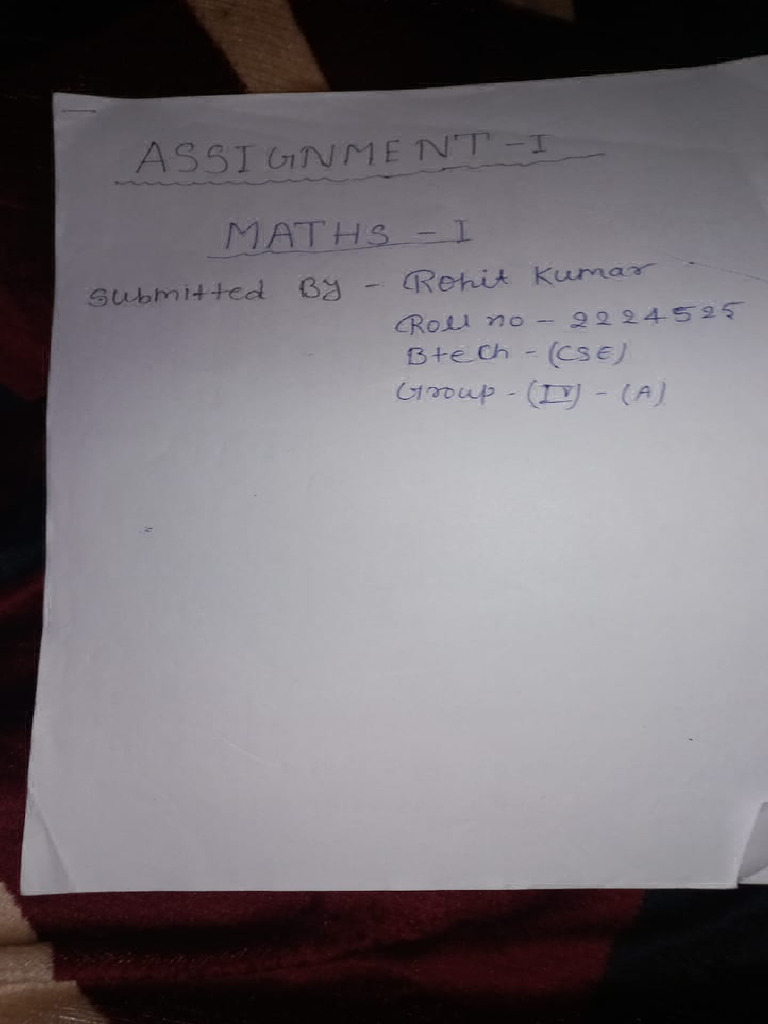 ASSIGNMENT - I
MATHS - I
Submitted By - Rohit Kumar
Roll no - 2224525
Btech - (CSE)
Group - (IV) - (A)